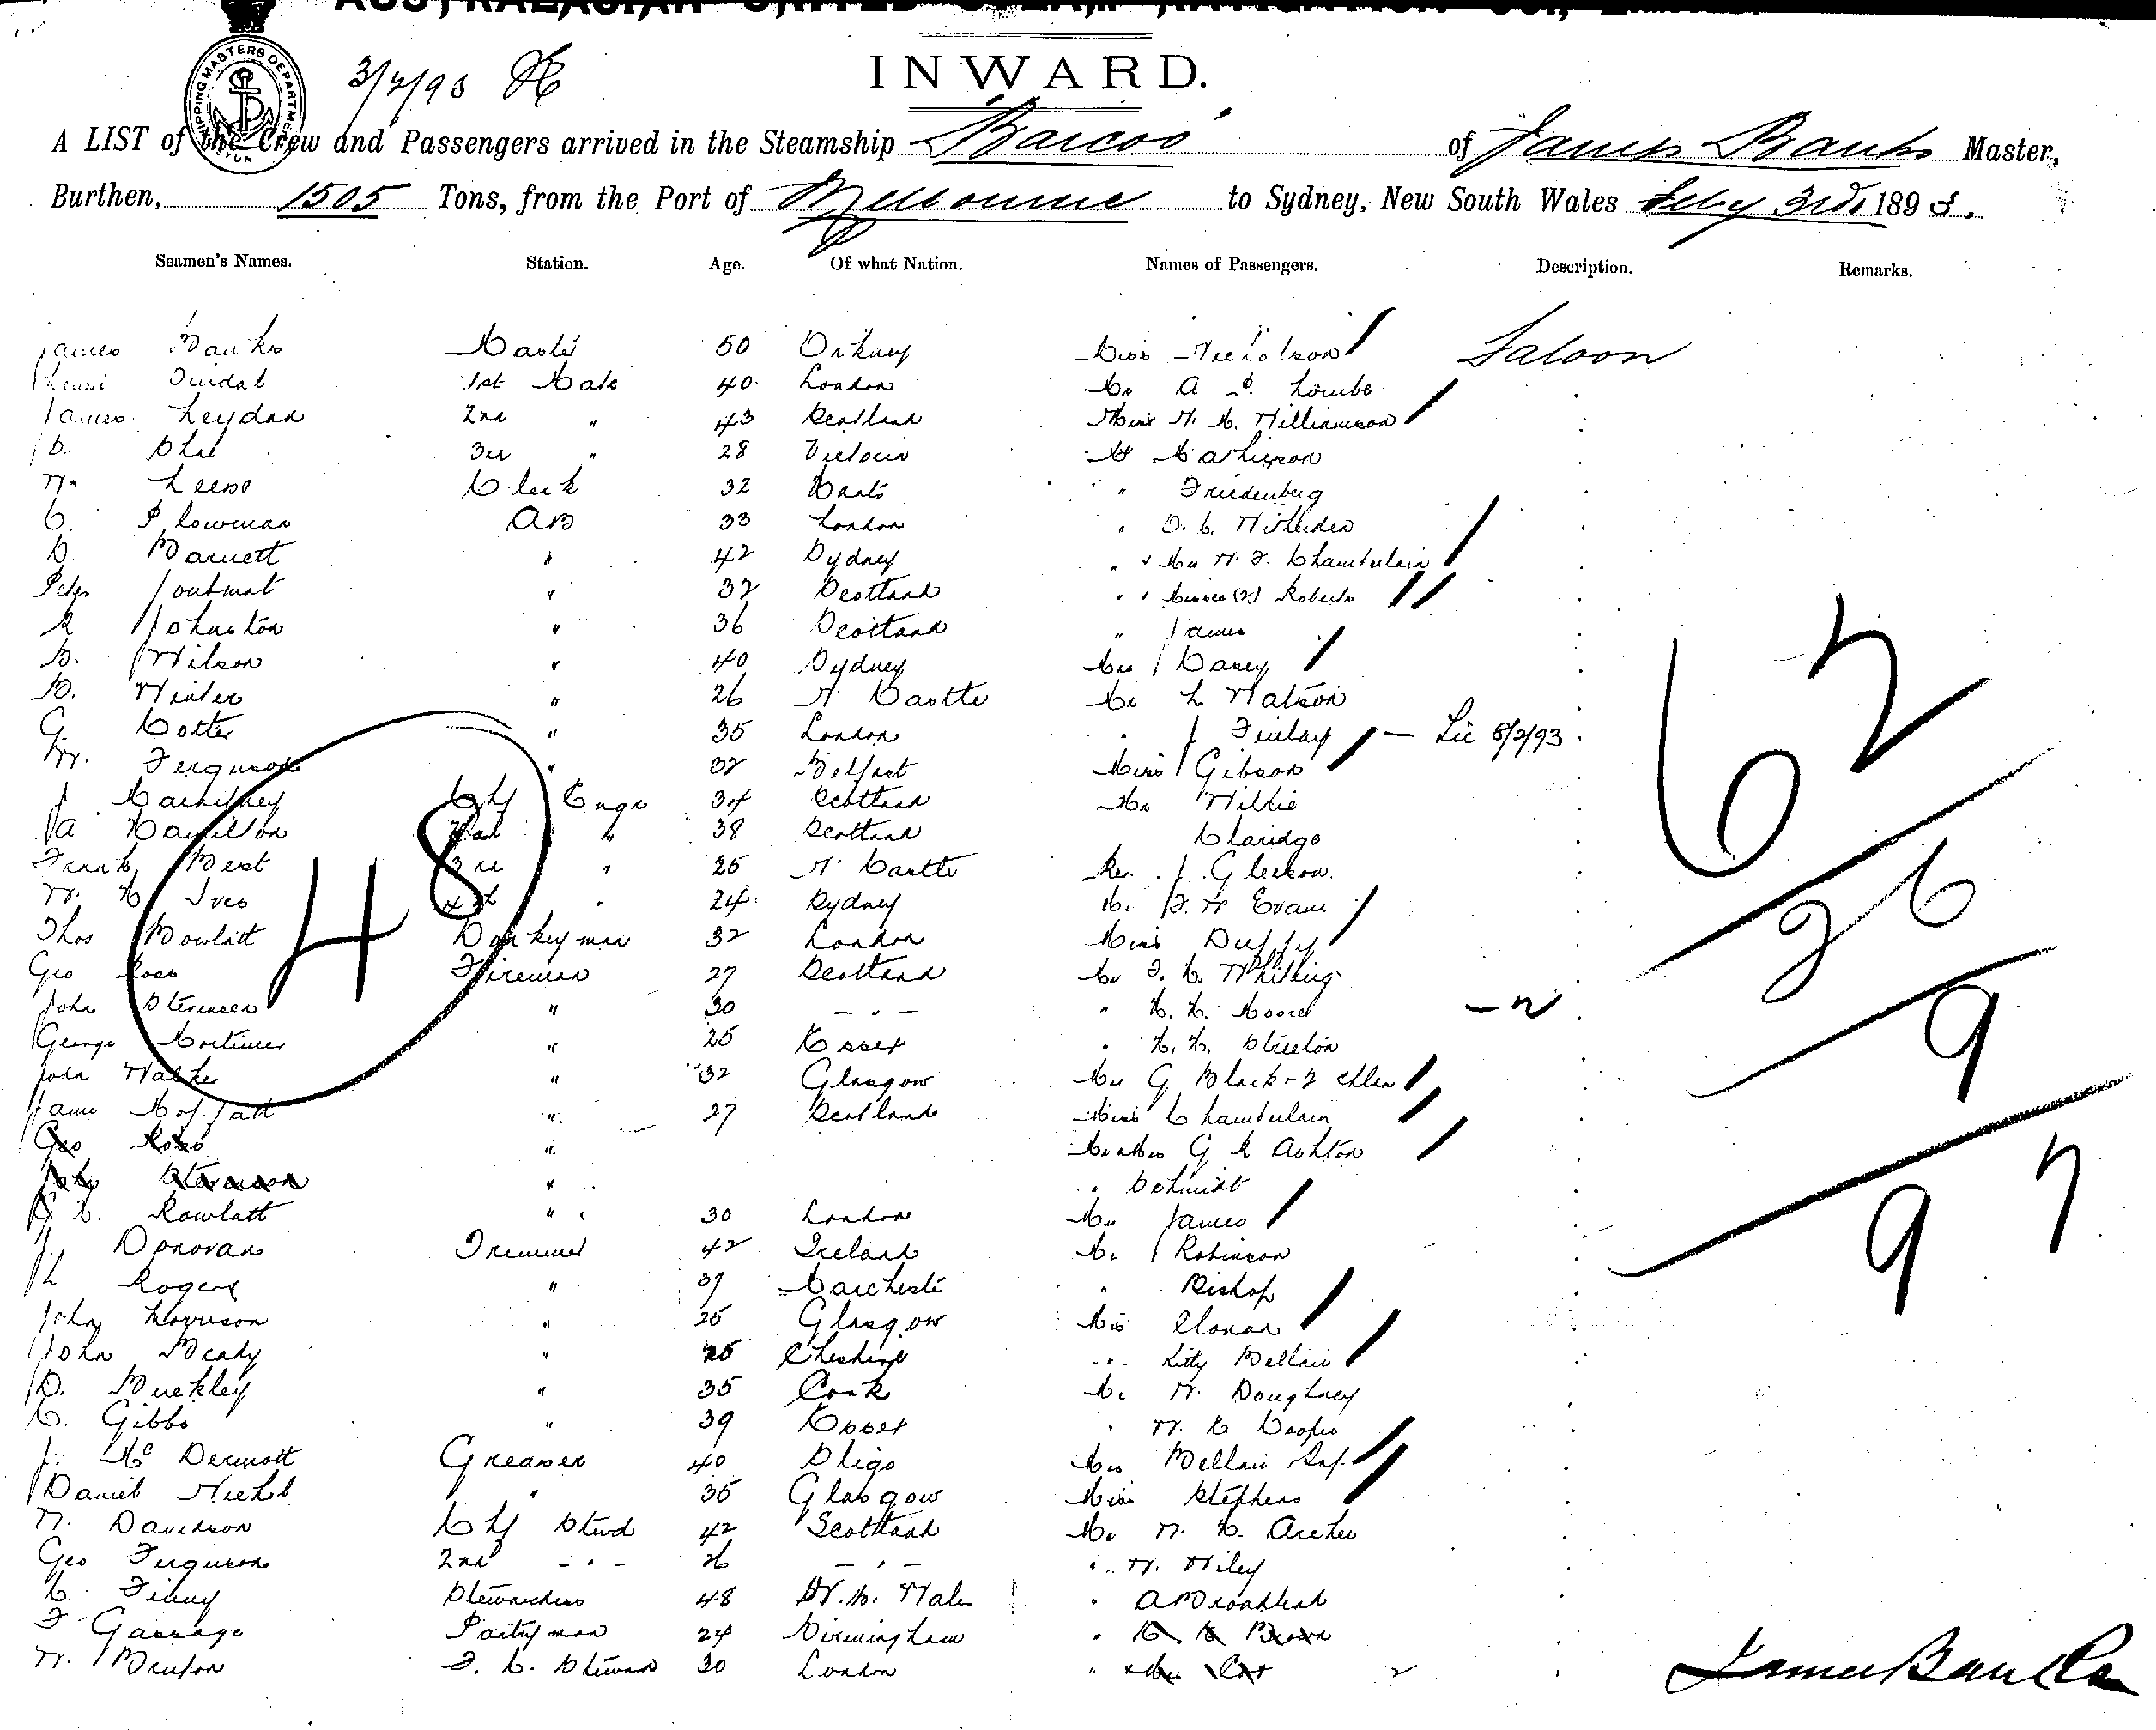 AUSTRALASIAN UNITED STEAM NAVIGATION CO., LIMITED.
INWARD.
SHIPPING MASTERS DEPARTMENT
3/2/93
A LIST of the Crew and Passengers arrived in the Steamship "Barcoo" of James Banks Master,
Burthen, 1505 Tons, from the Port of Melbourne to Sydney, New South Wales Feby 3rd, 1893.
Seamen's Names. Station. Age. Of what Nation. Names of Passengers. Description. Remarks.
James Banks Master 50 Orkney Miss Nicholson Saloon
1st Mate 40 London Mr A
James Leydan 2nd " 43 Scotland Miss Williamson
D. 3rd " 28 Victoria Mr Mathieson
W. Leese Clerk 32 Hants " Friedenberg
C. Plowman AB 33 London "
D. Barnett " 42 Sydney " & Mrs W. F. Chamberlain
Peter " 32 Scotland " " Misses (2) Roberts
R Johnston " 36 Scotland " James
S. Wilson " 40 Sydney Mrs Casey
D. Winter " 26 N. Castle Mr L Watson
G Cotter " 35 London " J Finlay — Lic 8/2/93
Wm. Ferguson " 32 Belfast Miss Gibson
J Macartney Chf Engr 34 Scotland Mr Wilkie
A Hamilton 2nd " 38 Scotland Claridge
Frank Best 3rd " 25 N. Castle Rev. J. Gleeson.
W. H Ives 4th " 24 Sydney Mr F. W Evans
Thos Rowlatt Donkeyman 32 London Miss Duffy
Geo Ross Fireman 27 Scotland Mr F. C. Whiting
John Stevenson " 30 — " — " H. H. Moore
George Mortimer " 25 Essex " H. H. Streeton
John Walker " 32 Glasgow Mrs G Black + 2 chln
James Moffatt " 27 Scotland Miss Chamberlain
Geo Ross " Mr & Mrs G R Ashton
John Stevenson " " Schmidt
H. Rowlatt " 30 London Mrs James
J. Donovan Trimmer 42 Ireland Mr Robinson
Rogers " 37 Manchester " Bishop
John Morrison " 25 Glasgow Miss
John Brady " 25 Cheshire " Kitty Bellair
D. Buckley " 35 Cork Mr W. Doughney
C. Gibbs " 39 Essex " W. H Cooper
J. McDermott Greaser 40 Sligo Mrs Bellair
Daniel " 35 Glasgow Miss Stephens
W. Davidson Chf Stwd 42 Scotland Mr W. H. Archer
Geo Ferguson 2nd — " — 26 — " — " W. Wiley
C. Finny Stewardess 48 N.S. Wales " A Broadbent
F Gassage Pantryman 24 Birmingham "
W. Bruton F. C. Steward 30 London "
48
62
26
9
97
James Banks